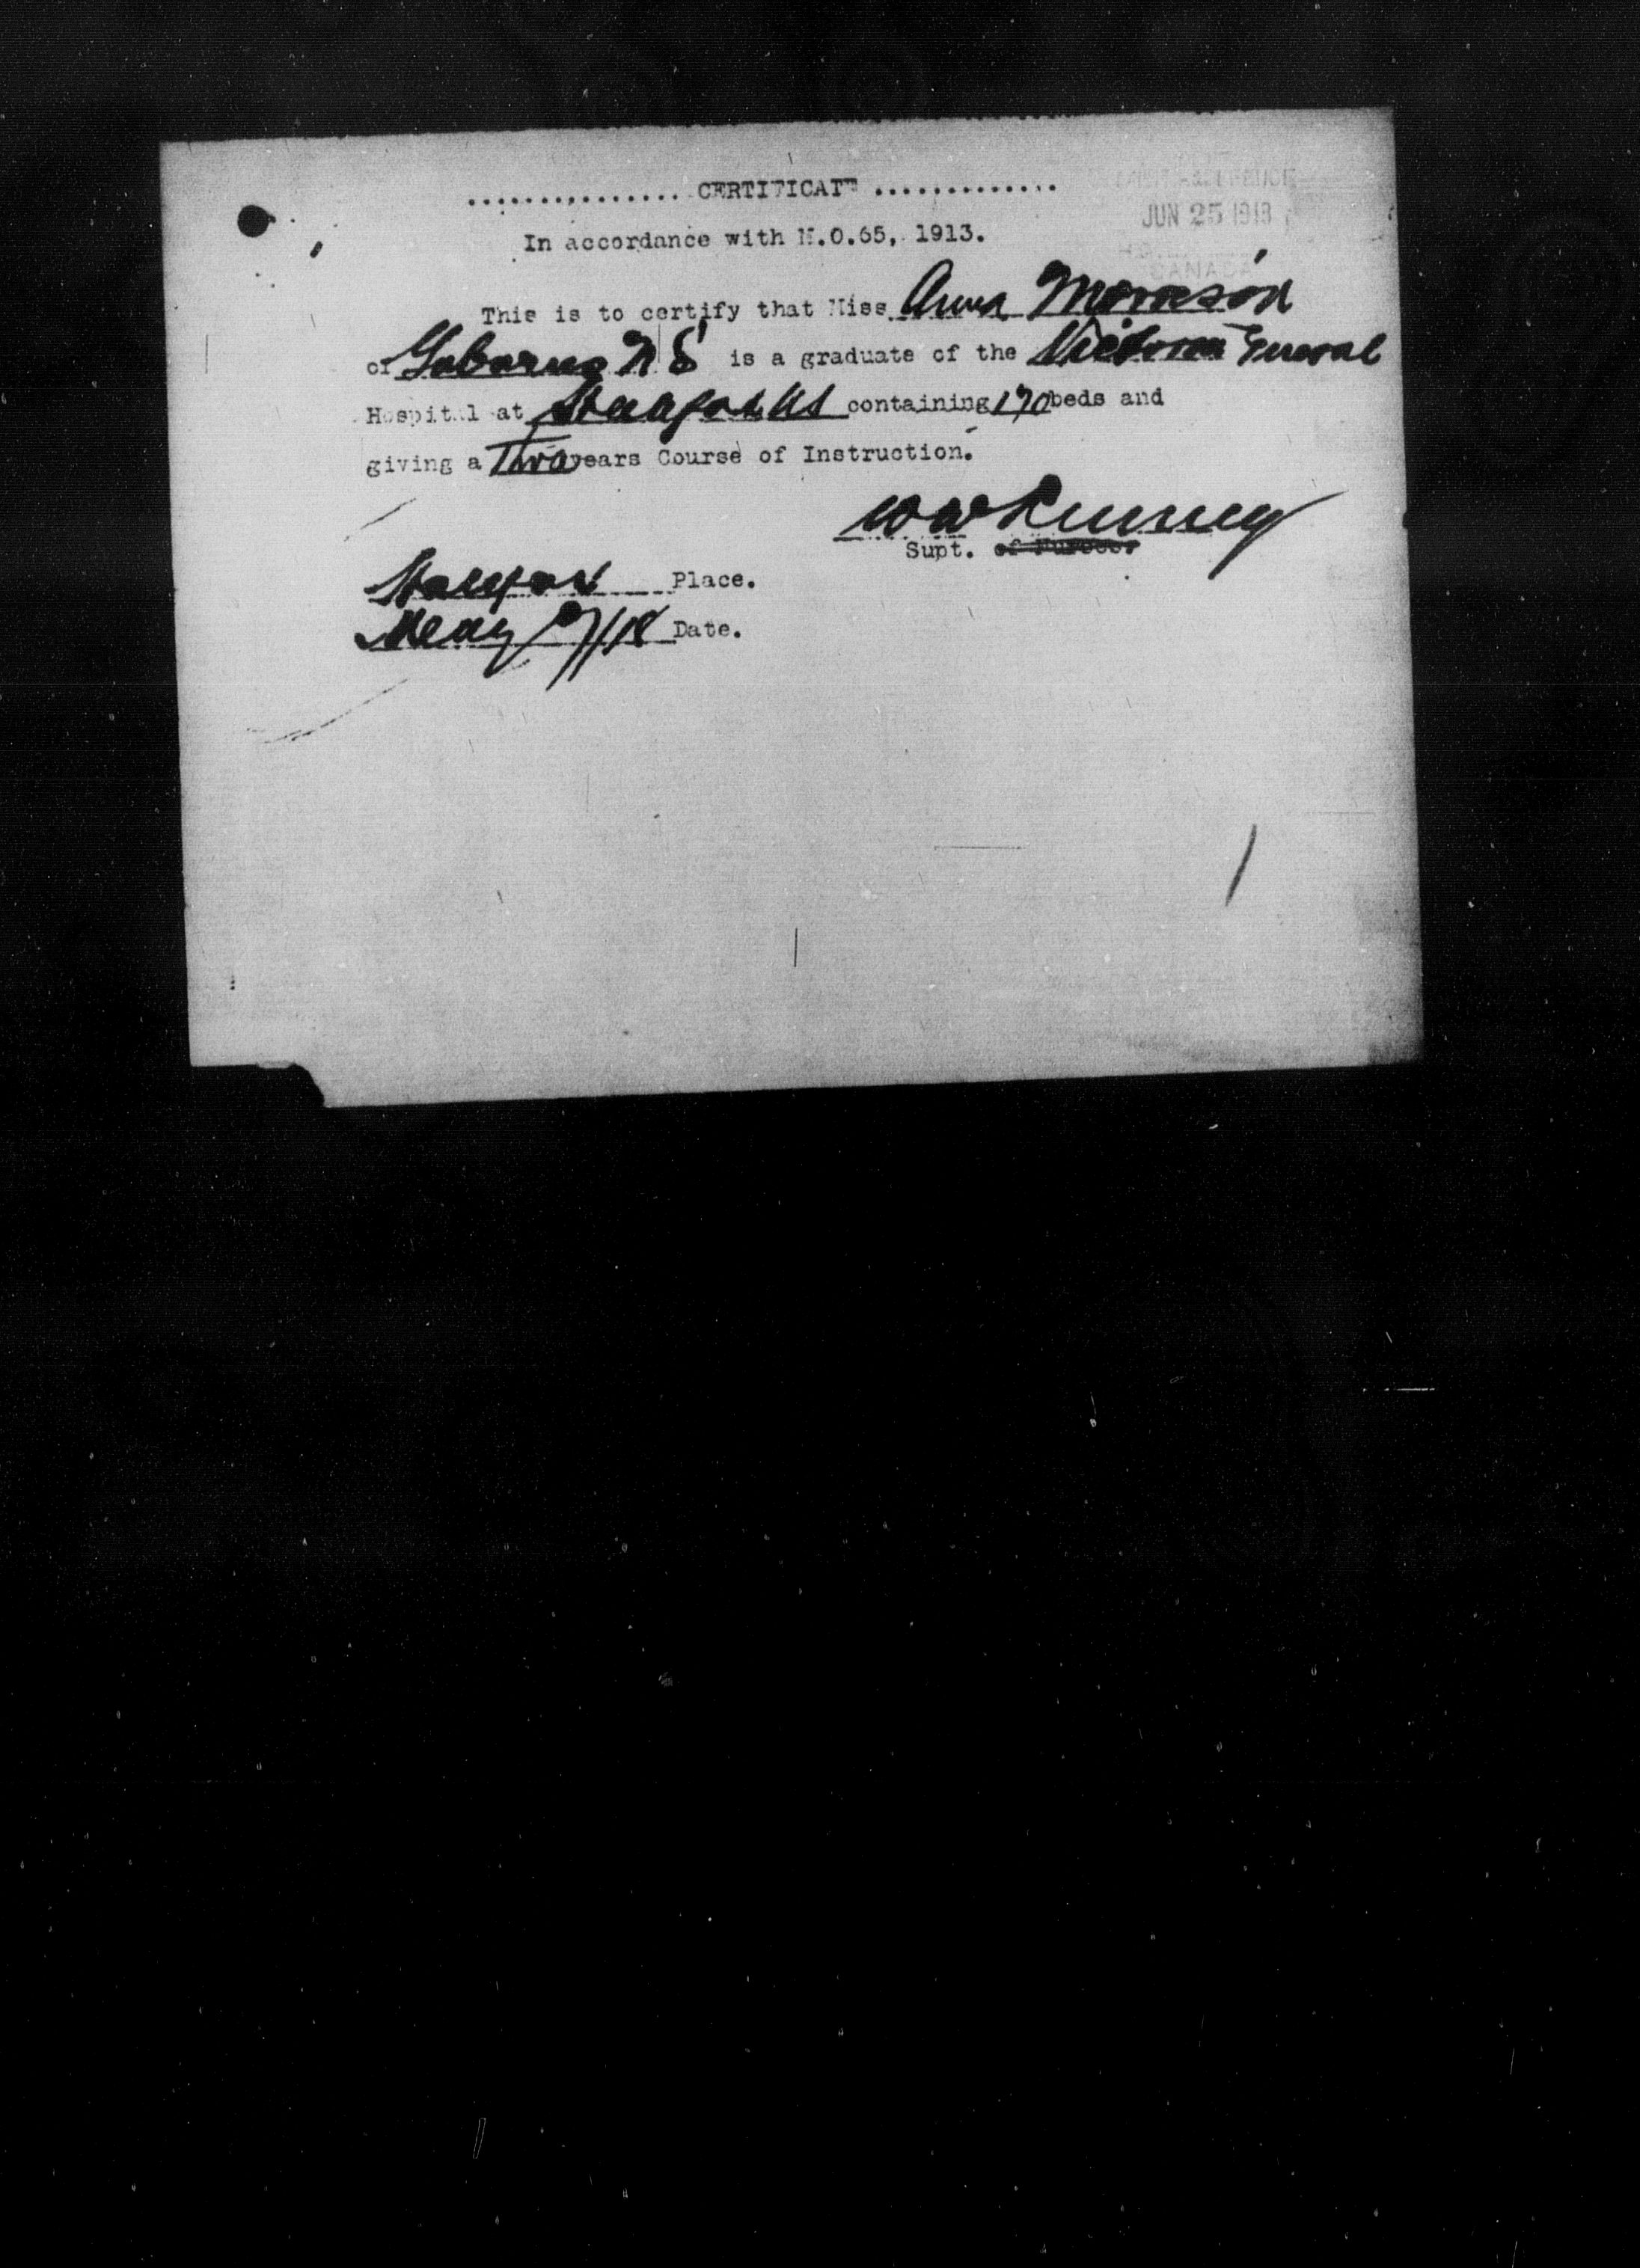 ............... CERTIFICATE .............
JUN 25 1918
CANADA
In accordance with M.O.65, 1913.
This is to certify that Miss Anna Morrison
of Gabarus N S is a graduate of the Victoria General
Hospital at Halifax NS containing 170 beds and
giving a Two years Course of Instruction.
W W Kenney
Supt. of Nurses.
Halifax Place.
May 7/18 Date.